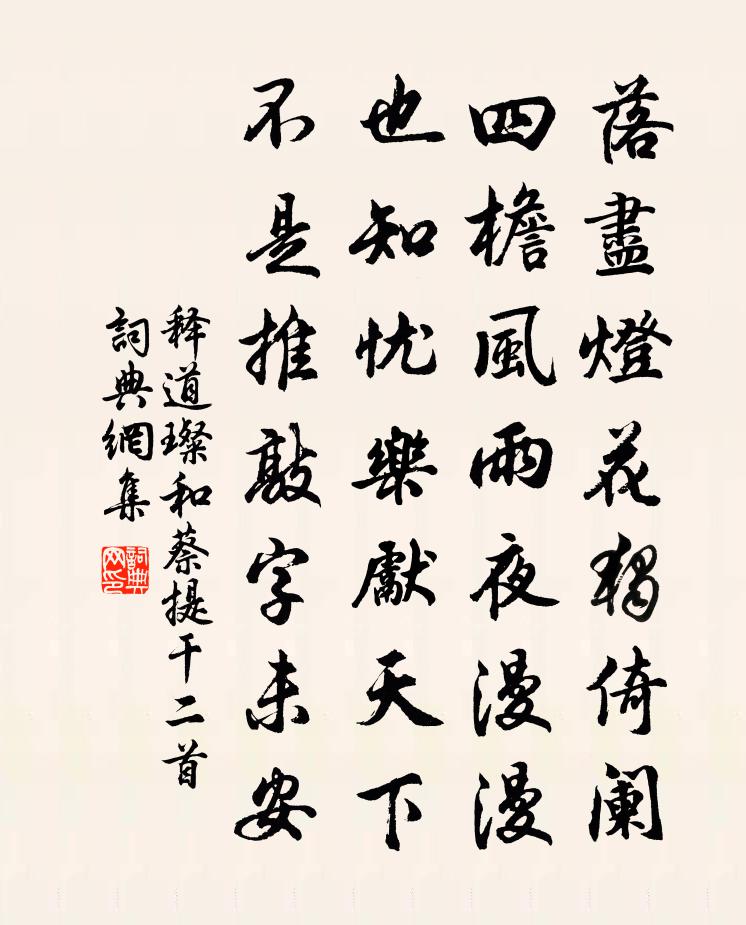 落盡燈花獨倚阑
四檐風雨夜漫漫
也知忧樂獻天下
不是推敲字未安
释道璨和蔡提干二首
詞典網集
詞典网印